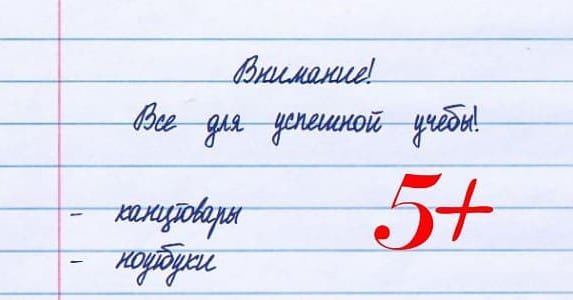 Внимание!
Все для успешной учебы!
- канцтовары
5+
- ноутбуки